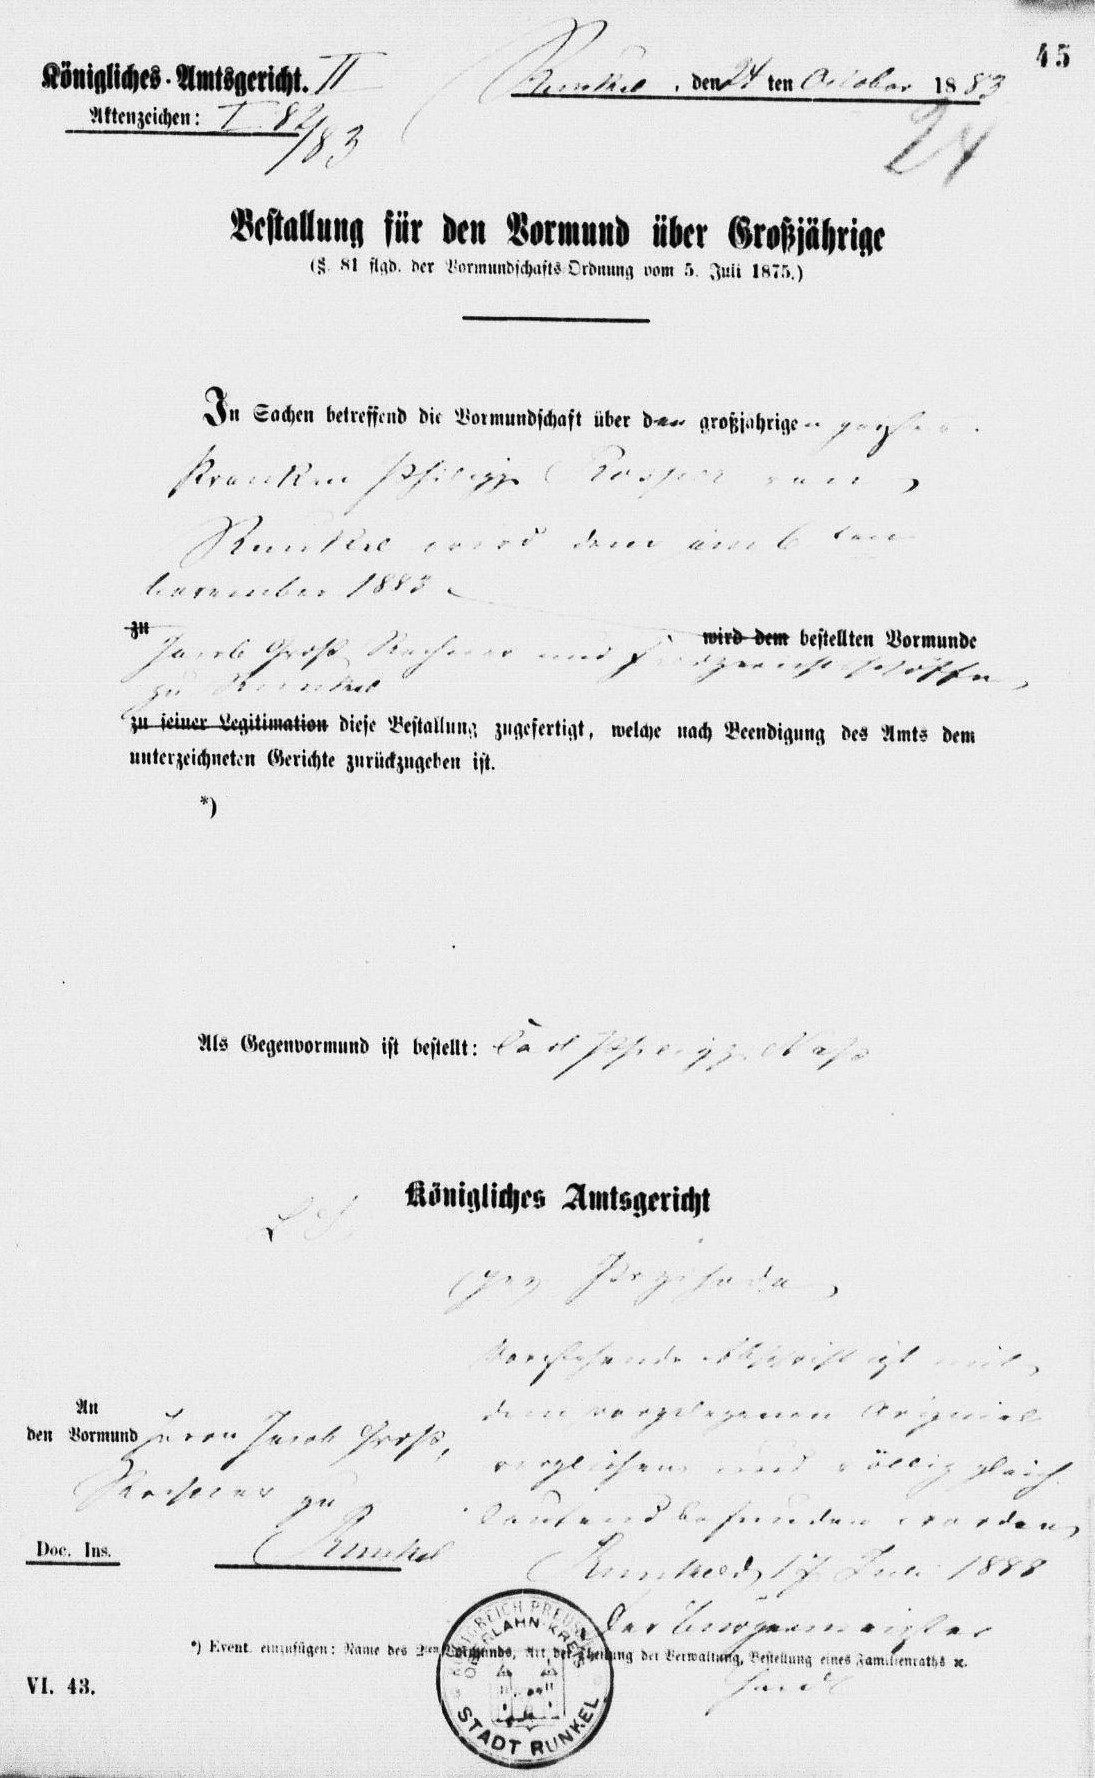 45
Königliches Amtsgericht. II
Runkel, den 24 ten October 1883
Aktenzeichen: I 82/83
24
Bestallung für den Vormund über Großjährige
(§. 81 flgd. der Vormundschafts-Ordnung vom 5. Juli 1875.)
In Sachen betreffend die Vormundschaft über den großjährigen geistes
kranken Philipp von
Runkel wird dem am 6 ten
November 1883
zu wird dem bestellten Vormunde
Jacob Groß, Rechner und Feldgerichtsschöffen
zu Runkel
zu seiner Legitimation diese Bestallung zugefertigt, welche nach Beendigung des Amts dem
unterzeichneten Gerichte zurückzugeben ist.
*)
Als Gegenvormund ist bestellt: Carl Philipp
Königliches Amtsgericht
L. S.
gez.
Vorstehende Abschrift ist mit
An
dem vorgelegenen Original
den Vormund Herrn Jacob Groß,
verglichen und völlig gleich
Rechner zu
lautend befunden worden
Runkel
Doc. Ins.
Runkel d. 17 Juli 1888
Der Bürgermeister
*) Event. einzufügen: Name des 2ten Vormunds, Art der Theilung der Verwaltung, Bestellung eines Familienraths ꝛc.
VI. 43.
KÖNIGREICH PREUSSEN
OBERLAHN-KREIS
STADT RUNKEL